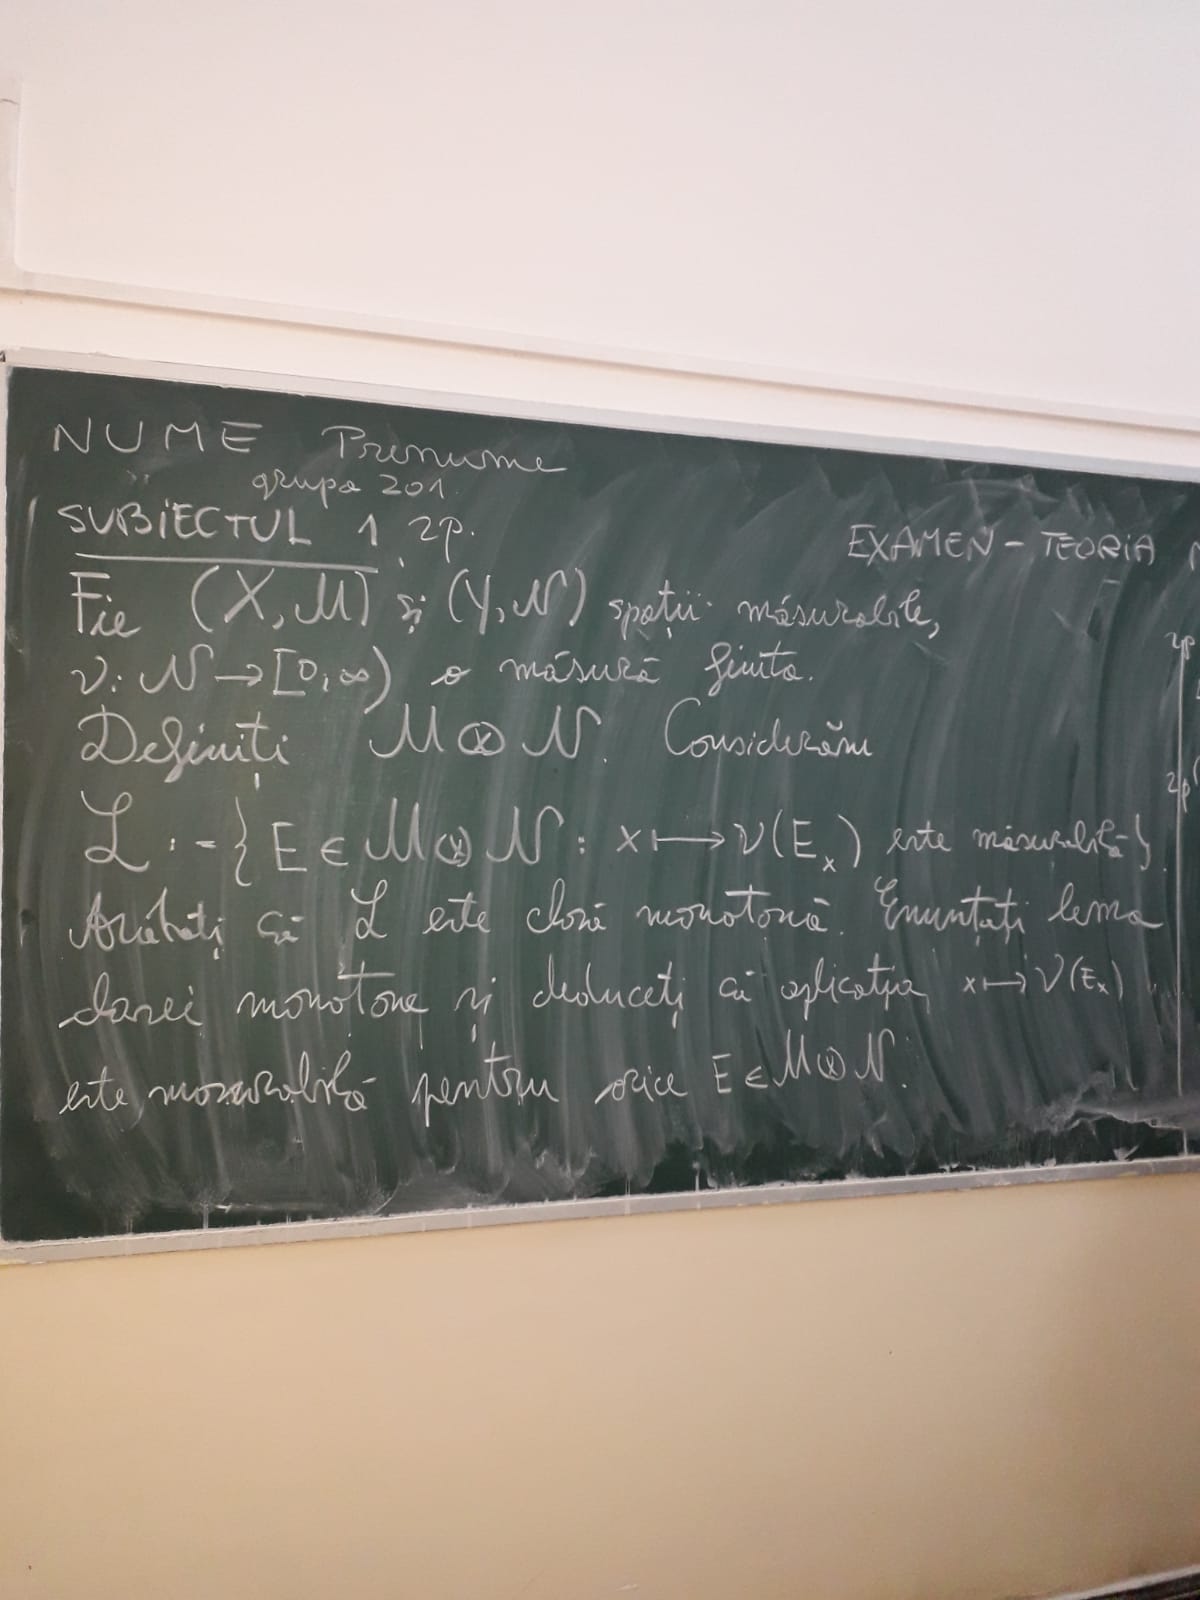 NUME Prenume
grupa 201.
SUBIECTUL 1, 2p.
EXAMEN - TEORIA
Fie (X, M) și (Y, N) spații măsurabile,
ν: N → [0, ∞) o măsură finita.
Definiți M ⊗ N. Considerăm
L := {E ∈ M ⊗ N : x ⟼ ν(Eₓ) este măsurabilă}.
Arătați că L este clasă monotonă. Enunțați lema
clasei monotone și deduceți că aplicația x ⟼ ν(Eₓ)
este masurabilă pentru orice E ∈ M ⊗ N.
2p
2p